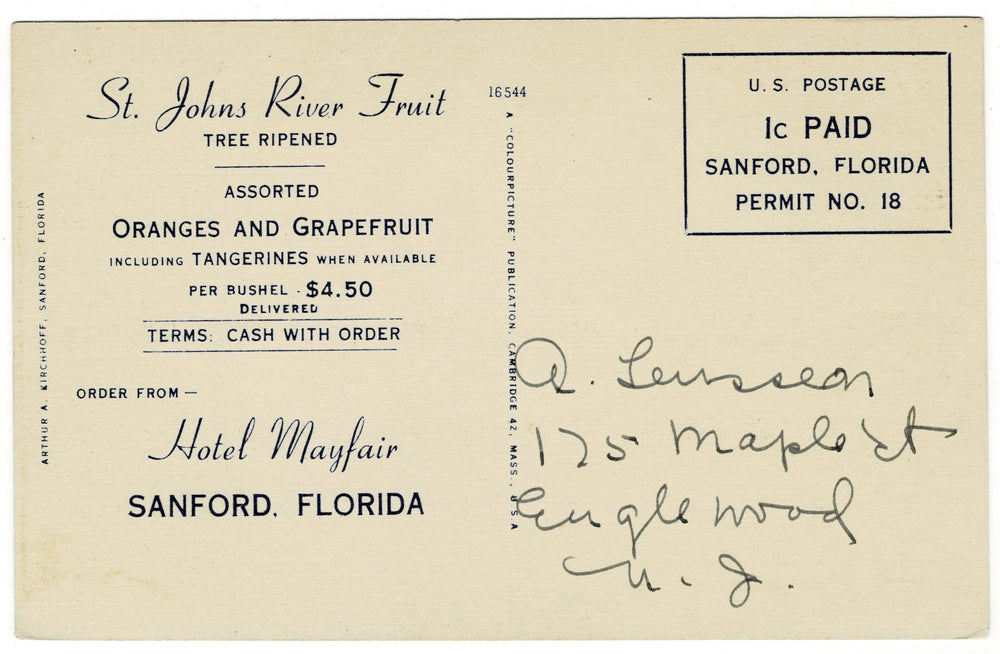 St. Johns River Fruit
TREE RIPENED
ASSORTED
ORANGES AND GRAPEFRUIT
INCLUDING TANGERINES WHEN AVAILABLE
PER BUSHEL - $4.50
DELIVERED
TERMS: CASH WITH ORDER
ORDER FROM —
Hotel Mayfair
SANFORD, FLORIDA
ARTHUR A. KIRCHHOFF, SANFORD, FLORIDA
16544
A "COLOURPICTURE" PUBLICATION, CAMBRIDGE 42, MASS., U S A
U. S. POSTAGE
1c PAID
SANFORD, FLORIDA
PERMIT NO. 18
175 Maple St
Englewood
N. J.